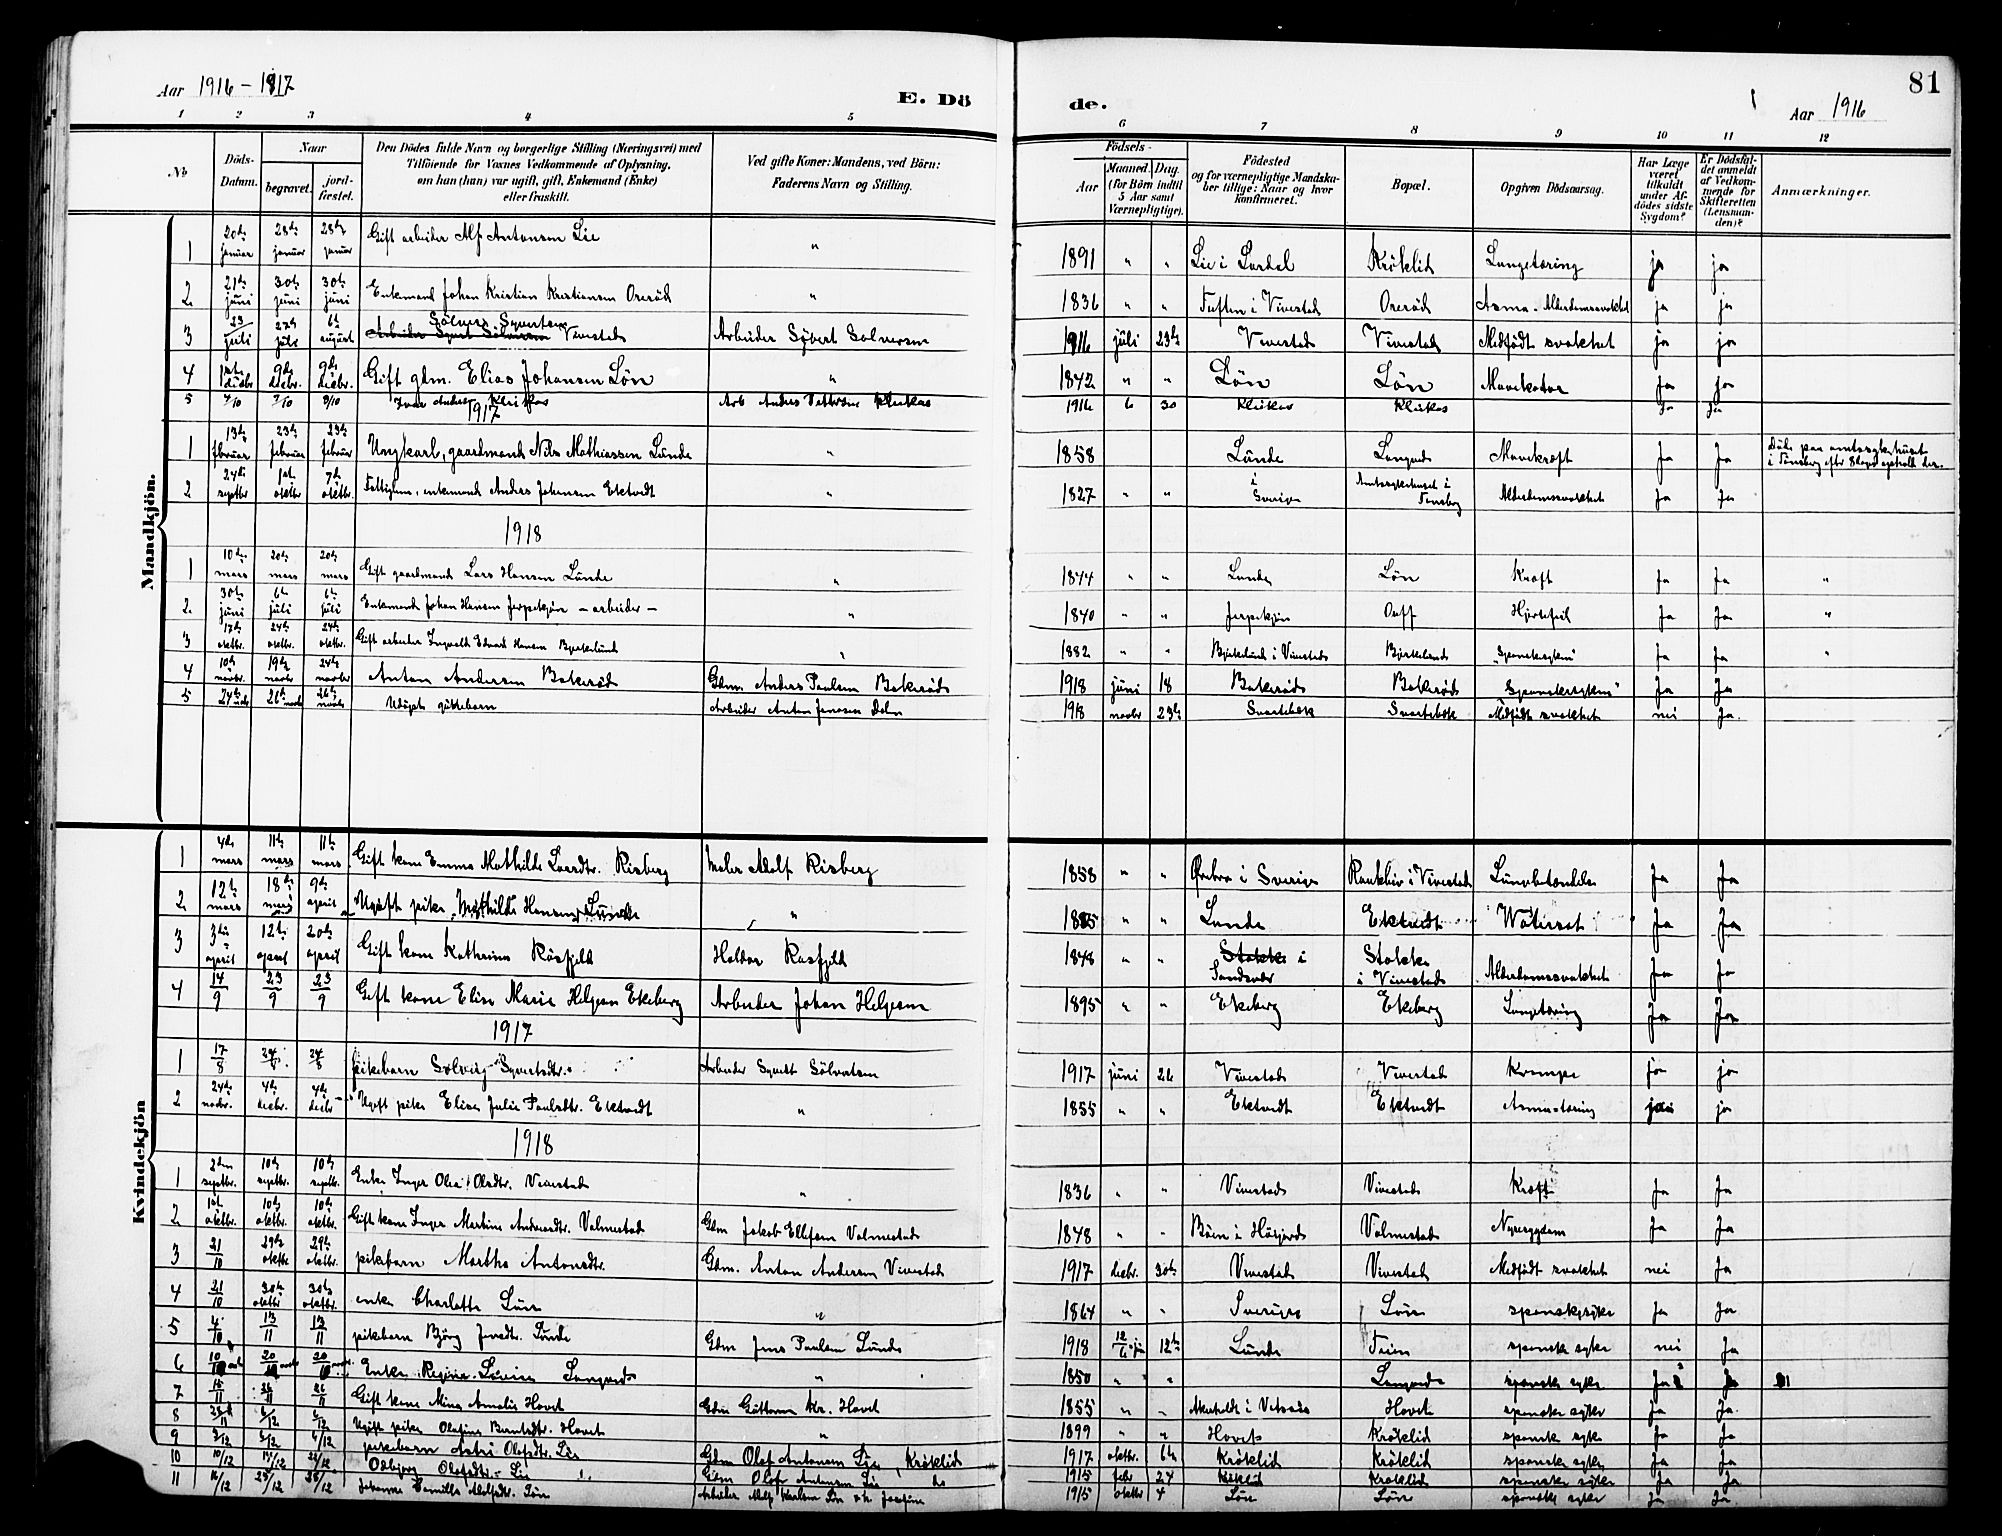 Aar 1916 - 1917
E. Dö
de.
Aar 1916
81
1 2 3 4 5 6 7 8 9 10 11 12
No
Döds-Datum.
Naar
begravet.
jord-fæstet.
Den Dödes fulde Navn og borgerlige Stilling (Næringsvei) med
Tilföiende for Voxnes Vedkommende af Oplysning,
om han (hun) var ugift, gift, Enkemand (Enke)
eller fraskilt.
Ved gifte Koner: Mandens, ved Börn:
Faderens Navn og Stilling.
Födsels-
Aar
Maaned. Dag.
(for Börn indtil
5 Aar samt
Værnepligtige).
Födested
og for værnepligtige Mandska-
ber tillige: Naar og hvor
konfirmeret.
Bopæl.
Opgiven Dödsaarsag.
Har Læge
været
tilkaldt
under Af-
dödes sidste
Sygdom?
Er Dödsfal-
det anmeldt
af Vedkom-
mende for
Skifteretten
(Lensman-
den)?
Anmærkninger.
Mandkjön.
1 20de januar 28de januar 28de januar Gift arbeider Alf Antonsen Lie " 1891 " " Lie i Lardal Kröklid Lungetæring ja ja
2 21de juni 30de juni 30de juni Enkemand Johan Kristian Kristiansen Oreröd " 1836 " " Tuften i Vivestad Oreröd Asma - Alderdomssvakhet ja ja
3 23/juli 27de juli 6te august Sölver Syvertsen Vivestad Arbeider Syvert Solversen 1916 juli 23de Vivestad Vivestad Medfödt svakhet ja ja
4 1ste decbr 9de decbr. 9de decbr. Gift gdm. Elias Johansen Lön " 1842 " " Lön Lön Mavekatar ja ja
5 7/10 Ivar Anders Kleikas Arb Anders Pettersen Kleikas 1916 6 30 Kleikas Kleikas Ja Ja
1917
1 13de februar 23de februar 23de februar Ungkarl, gaardmand Nils Mathiassen Lunde " 1858 Lunde Langved Mavekræft Ja Ja Döde paa amtssykehuset
i Tönsberg
2 24de septbr 1ste oktbr 7de oktbr. Fattiglem, enkemand Anders Johansen Ektvedt " 1827 " " i Sverige Amtssykehuset i Tønsberg Alderdomssvakhet Ja Ja
1918
1 10de mars 20de mars 20de mars Gift gaardmand Lars Hansen Lunde " 1844 " " Lunde Lön Kræft Ja Ja "
2. 30te juni 6te juli 6te juli Enkemand Johan Hansen Jerpekjøn - arbeider - " 1840 " " Jerpekjøn Hjertefeil Ja Ja "
3 17de oktbr. 24de oktbr. 24de oktbr. Gift arbeider Ingvald Edvard Hansen Bjerkelund " 1882 " " Bjerkelund i Vivestad Bjerkelund "Spanskesyken" Ja Ja "
4 10de novbr. 19de novbr 24de novbr Anton Andersen Bakeröd Gdm. Anders Paulsen Bakeröd 1918 juni 18 Bakeröd Bakeröd "Spanskesyken" Ja Ja
5 24de nvbr 26de novbr 26de novbr Udöpt guttebarn Arbeider Anton Jensen Dalen 1918 novbr 23de Svartebæk Svartebæk Medfödt svakhet nei Ja.
Kvindekjön
1 4de mars 11te mars 11te mars Gift kone Emma Mathilde Larsdtr. Risberg Maler Adolf Risberg 1858 " " Örebro i Sverige i Vivestad Lungebetændelse Ja Ja
2. 12te mars 18de mars 9de april Ugift pike Mathilde Hansen Lunde " " " Lunde Ektvedt Watersot Ja Ja
3 3die april 12te april 20de april Gift kone Kathrine Röisfjeld Haldor Rusfjeld 1848 Stokke i Sandsvær Stokke i Vivestad Alderdomssvakhet Ja Ja
4 14/9 23/9 23/9 Gift kone Elise Marie Helgesen Ekeberg Arbeider Johan Helgesen 1895 " " Ekeberg Ekeberg Lungetæring Ja Ja
1917
1 17/8 24/8 24/8 pikebarn Solveig Syvertsdtr. Arbeider Syvert Sölversen 1917 juni 26 Vivestad Vivestad Krampe ja ja
2 24de novbr. 4de decbr. 4de decbr Ugift pike Elise Julie Paulsdtr. Ektvedt " 1855 " " Ektvedt Ektvedt ja ja
1918
1 2den septbr. 10de septbr. 10de septbr. Enke Inger Olea Olsdtr. Vivestad " 1836 " " Vivestad Vivestad Kræft Ja Ja
2. 1ste oktbr. 10de oktbr. 10de oktbr. Gift kone Inger Martine Andersdtr. Valmestad Gdm Jakob Ellefsen Valmestad 1848 " " Böen i Höijord Valmestad Nyresygdom Ja Ja
3 21/10 29de oktbr 29de oktbr. pikebarn Martha Antonsdtr. Gdm. Anton Andersen Vivestad 1917 decbr. 30te Vivestad Vivestad Medfödt svakhet nei Ja
4 21/10 30te oktbr 30te oktbr. enke Charlotte Lön " 1864 " " Sverige Lön spanskesyke Ja Ja
5 13/11 13/11 pikebarn Björg Jensdtr. Lunde Gdm Jens Paulsen Lunde 1918 12te Lunde Feen spansk syke nei Ja
6 Enke Regine Lovise Langved " 1850 " " Langved spansk syke Ja Ja
7 15/11 26/11 26/11 Gift kone Mina Amalie Hovet Gdm Guttorm Kr. Hovet 1855 " " i Vivestad Hovet spanske syke Ja Ja.
8 Ugift pike Olafine Berntsdtr. Hovet " 1899 " " Hovet Kröklid spansk syke Ja Ja
9 pikebarn Astri Olafsdtr. Lie Gdm Olaf Antonsen Lie, Kröklid 1917 oktbr. 6te Kröklid Kröklid spansk syke Ja Ja
10 10/12 Odbjørg Olafsdtr. Lie Gdm Olaf Antonsen Lie do 1915 febr 24 Kröklid Kröklid spanske syke Ja Ja
11 16/12 25/12 25/12 Johanne Camilla Adolfsdtr. Lön Arbeider Adolf Karlsen Lön 1915 oktbr 4 Lön Lön spanske syke Ja Ja.